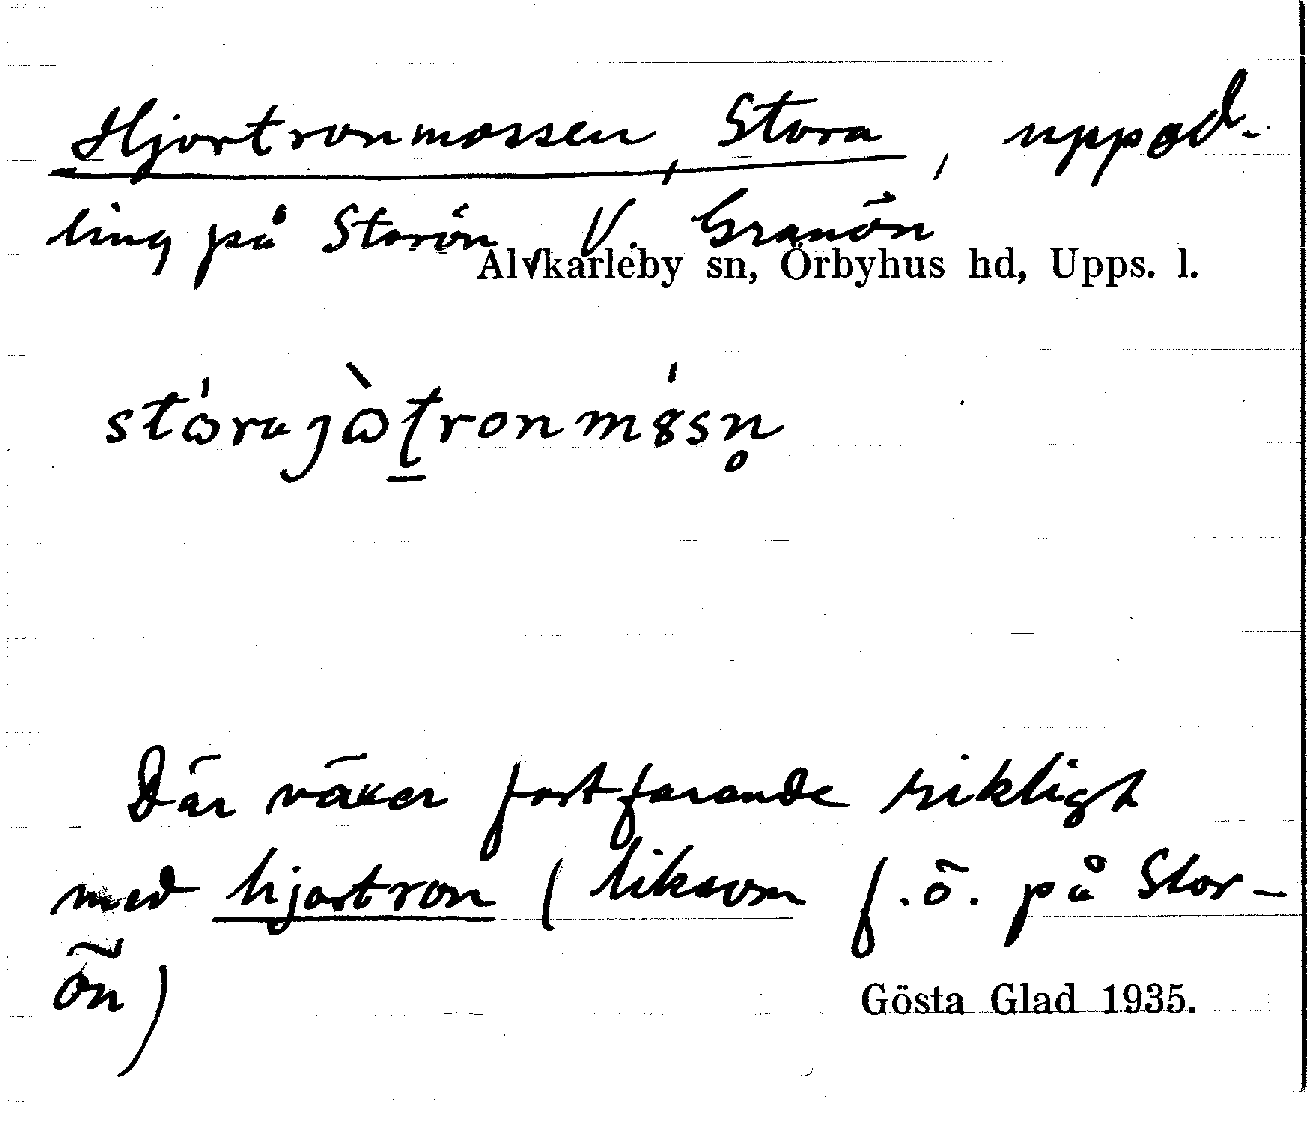 Hjortronmossen, Stora, uppod-
ling på Storön V. Granön
Älvkarleby sn, Örbyhus hd, Upps. l.
Där växer fortfarande rikligt
med hjortron (liksom f.ö. på Stor-
ön)
Gösta Glad 1935.